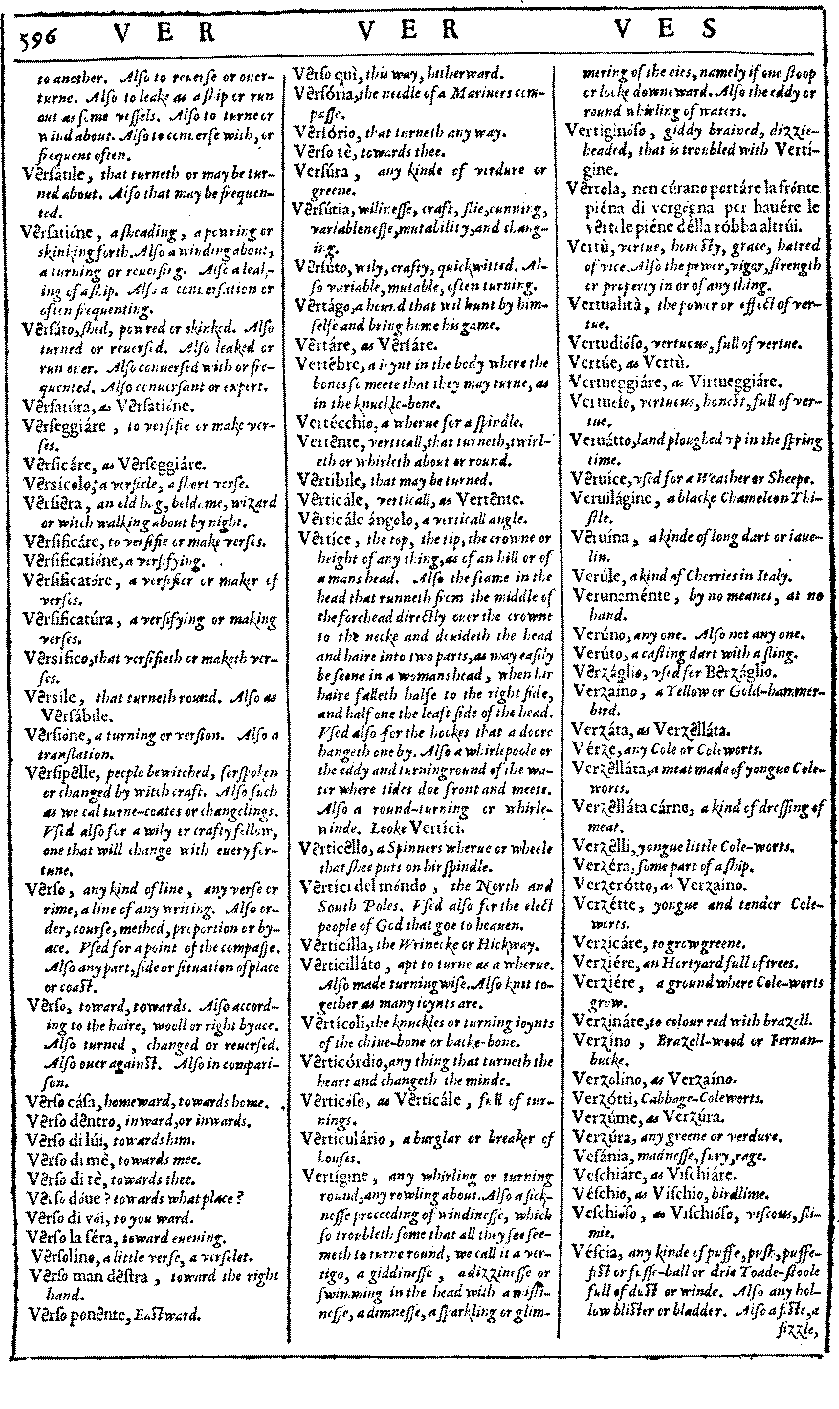 596 VER VER VES
to another. Also to reuerse or ouer-
turne. Also to leake as a ship or run
out as some vessels. Also to turne or
wind about. Also to conuerse with, or
frequent often.
Vêrsátile, that turneth or may be tur-
ned about. Also that may be frequen-
ted.
Vêrsatióne, a sheading, a pouring or
skinking forth. Also a winding about,
a turning or reuersing. Also a leak-
ing of a ship. Also a conuersation or
often frequenting.
Vêrsáto, shed, poured or skinked. Also
turned or reuersed. Also leaked or
run ouer. Also conuersed with or fre-
quented. Also conuersant or expert.
Vêrsatúra, as Vêrsatióne.
Vêrseggiáre, to versifie or make ver-
ses.
Vêrsicáre, as Vêrseggiáre.
Vêrsícolo, a versicle, a short verse.
Vêrsiêra, an old hag, beldame, wizard
or witch walking about by night.
Vêrsificáre, to versifie or make verses.
Vêrsificatióne, a versifying.
Vêrsificatóre, a versifier or maker of
verses.
Vêrsificatúra, a versifying or making
verses.
Vêrsífico, that versifieth or maketh ver-
ses.
Vêrsile, that turneth round. Also as
Vêrsábile.
Vêrsióne, a turning or version. Also a
translation.
Vêrsipêlle, people bewitched, forspoken
or changed by witch craft. Also such
as we cal turne-coates or changelings.
Vsed also for a wily or crafty fellow,
one that will change with euery for-
tune.
Vêrso, any kind of line, any verse or
rime, a line of any writing. Also or-
der, course, method, proportion or by-
ace. Vsed for a point of the compasse.
Also any part, side or situation of place
or coast.
Vêrso, toward, towards. Also accord-
ing to the haire, wooll or right byace.
Also turned, changed or reuersed.
Also ouer against. Also in compari-
son.
Vêrso cása, homeward, towards home.
Vêrso dêntro, inward, or inwards.
Vêrso di lúi, towards him.
Vêrso di mê, towards mee.
Vêrso di tê, towards thee.
Vêrso dóue? towards what place?
Vêrso di vói, to you ward.
Vêrso la séra, toward euening.
Vêrsolíno, a little verse, a verselet.
Vêrso man dêstra, toward the right
hand.
Vêrso ponênte, Eastward.
Vêrso quì, this way, hitherward.
Vêrsória, the needle of a Mariners com-
passe.
Vêrsório, that turneth any way.
Vêrso tê, towards thee.
Versúra, any kinde of verdure or
greene.
Vêrsútia, wilinesse, craft, slie, cunning,
variablenesse, mutability, and chang-
ing.
Vêrsúto, wily, crafty, quick witted. Al-
so variable, mutable, often turning.
Vertágo, a hound that wil hunt by him-
selfe and bring home his game.
Vêrtáre, as Vêrsáre.
Vertêbre, a ioynt in the body where the
bones so meete that they may turne, as
in the knuckle-bone.
Vertécchio, a wherue for a spindle.
Vertênte, verticall, that turneth, twirl-
eth or whirleth about or round.
Vêrtíbile, that may be turned.
Vêrticále, verticall, as Vertênte.
Vêrticále ángolo, a verticall angle.
Vêrtice, the top, the tip, the crowne or
height of any thing, as of an hill or of
a mans head. Also the seame in the
head that runneth from the middle of
the forehead directly ouer the crowne
to the necke and deuideth the head
and haire into two parts, as may easily
be seene in a womans head, when hir
haire falleth halfe to the right side,
and half one the leaft side of the head.
Vsed also for the hookes that a doore
hangeth one by. Also a whirlepoole or
the eddy and turning round of the wa-
ter where tides doe front and meete.
Also a round-turning or whirle-
winde. Looke Vertíci.
Vêrticêllo, a Spinners wherue or wheele
that shee puts on hir spindle.
Vêrtíci del móndo, the North and
South Poles. Vsed also for the elect
people of God that goe to heauen.
Vêrticílla, the Wrinecke or Hickway.
Vêrticilláto, apt to turne as a wherue.
Also made turning wise. Also knit to-
gether as many ioynts are.
Vêrticoli, the knuckles or turning ioynts
of the chine-bone or backe-bone.
Vêrticórdio, any thing that turneth the
heart and changeth the minde.
Vêrticóso, as Vêrticále, full of tur-
nings.
Vêrticulário, a burglar or breaker of
houses.
Vertígine, any whirling or turning
round, any rowling about. Also a sick-
nesse proceeding of windinesse, which
so troubleth some that all they see see-
meth to turne round, we call it a ver-
tigo, a giddinesse, a dizzinesse or
swimming in the head with a misti-
nesse, a dimnesse, a sparkling or glim-
mering of the eies, namely if one stoop
or looke downward. Also the eddy or
round whirling of waters.
Vertiginóso, giddy brained, dizzie-
headed, that is troubled with Vertí-
gine.
Vêrtola, non cúrano portáre la frónte
piéna di vergógna per hauére le
vêrtole piéne délla róbba altrúi.
Vertù, vertue, honesty, grace, hatred
of vice. Also the power, vigor, strength
or property in or of any thing.
Vertualità, the power or effect of ver-
tue.
Vertudióso, vertuous, full of vertue.
Vertúe, as Vertù.
Vertueggiáre, as Virtueggiáre.
Vertuóso, vertuous, honest, full of ver-
tue.
Veruátto, land ploughed vp in the spring
time.
Vêruice, vsed for a Weather or Sheepe.
Veruilágine, a blacke Chameleon Thi-
stle.
Veruína, a kinde of long dart or iaue-
lin.
Verúle, a kind of Cherries in Italy.
Verunaménte, by no meanes, at no
hand.
Verúno, any one. Also not any one.
Verúto, a casting dart with a sling.
Vêrzáglio, vsed for Bêrzáglio.
Verzaíno, a Yellow or Gold-hammer-
bird.
Verzáta, as Verzêlláta.
Vérze, any Cole or Coleworts.
Verzêlláta, a meat made of yongue Cole-
worts.
Verzêlláta cárne, a kind of dressing of
meat.
Verzêlli, yongue little Cole-worts.
Verzéra, some part of a ship.
Verzerótto, as Verzaíno.
Verzétte, yongue and tender Cole-
worts.
Verzicáre, to grow greene.
Verziére, an Hortyard full of trees.
Verziére, a ground where Cole-worts
grow.
Verzináre, to colour red with brazell.
Verzíno, Brazell-wood or Fernan-
bucke.
Verzolíno, as Verzaíno.
Verzótti, Cabbage-Coleworts.
Verzúme, as Verzúra.
Verzúra, any greene or verdure.
Vesánia, madnesse, fury, rage.
Veschiáre, as Vischiáre.
Véschio, as Vischio, birdlime.
Veschióso, as Vischióso, viscous, sli-
mie.
Véscia, any kinde of puffe, push, puffe-
fist or fusse-ball or drie Toade-stoole
full of dust or winde. Also any hol-
low blister or bladder. Also a fiste, a
fizzle,